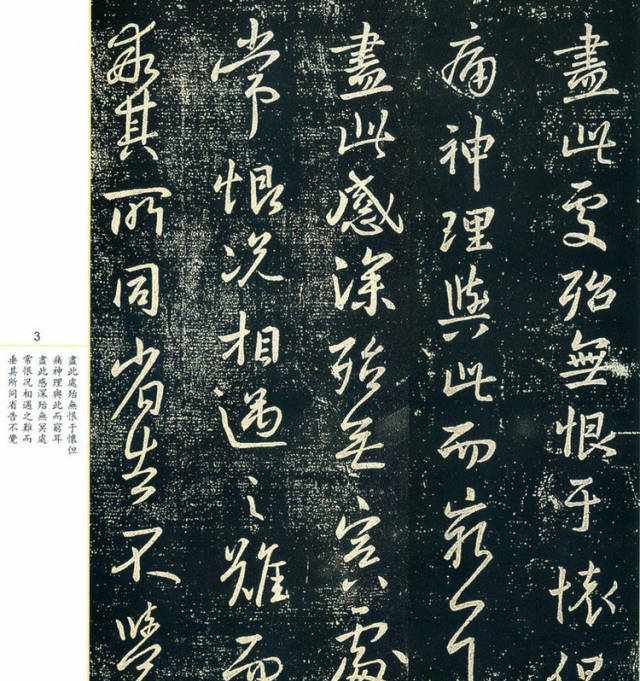 盡此處殆無恨于懷但
痛神理與此而窮耳
盡此感深殆無冥處
常恨況相遇之難而
乖其所同省告不覺
3
盡此處殆無恨于懷但
痛神理與此而窮耳
盡此感深殆無冥處
常恨況相遇之難而
垂其所同省告不覺